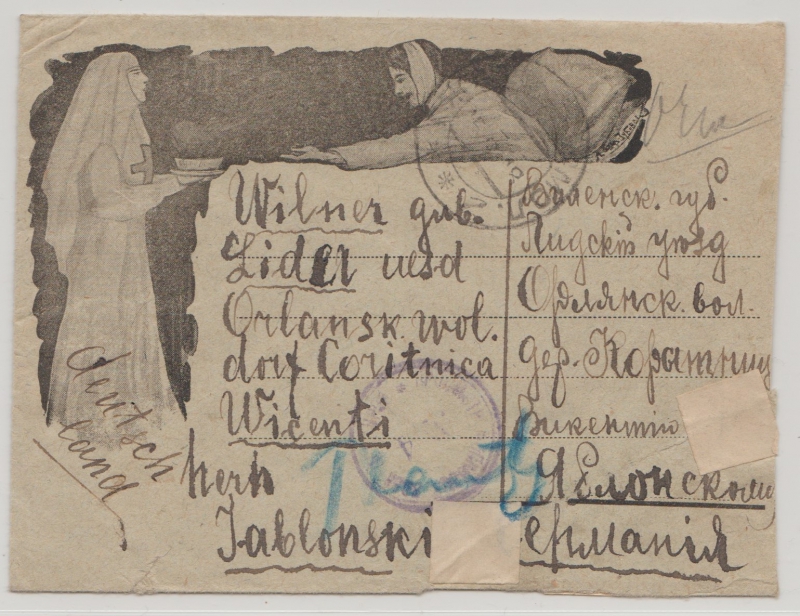 Wilner gub.
Lider uesd
Orlansk wol.
dorf Coritnica
Wicenti
hern
Jablonski
Виленск. губ.
Лидскій уѣзд
Орлянск. вол.
дер. Коратниц
Викентію
Яблонскому
ерманія
deutsch
land